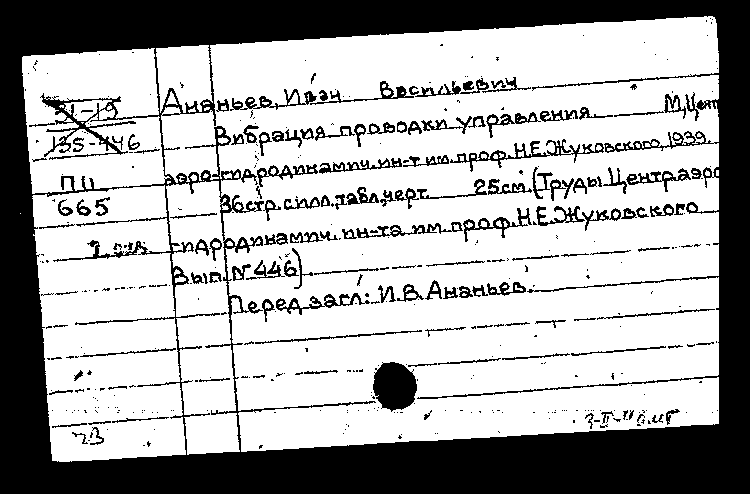 31-19
135-446
П11
665
Ананьев, Иван Васильевич
Вибрация проводки управления. М, Цент
аэро-гидродинамич. ин-т им. проф. Н.Е. Жуковского, 1939.
36 стр. с илл., табл., черт. 25 см. (Труды Центр аэро
гидродинамич. ин-та им. проф. Н.Е. Жуковского
Вып. № 446).
Перед загл: И.В. Ананьев.